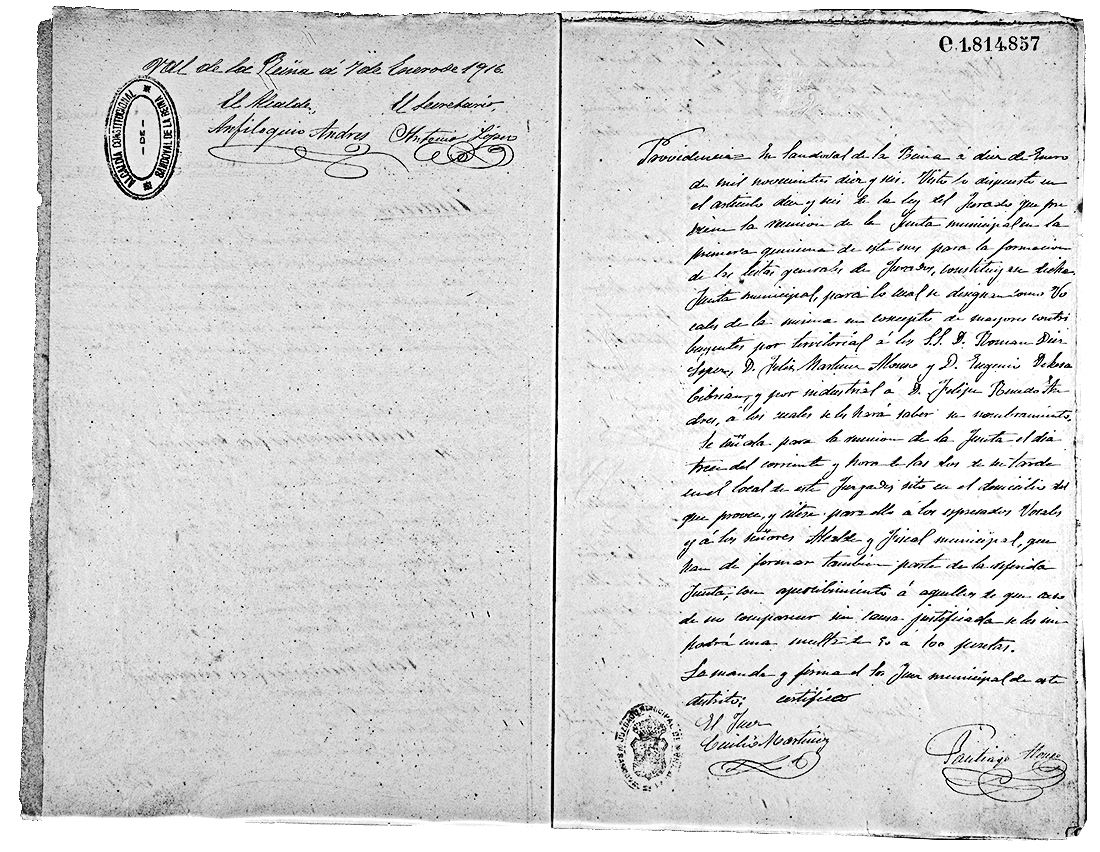 Val de la Reina á 7 de Enero de 1916.
El Alcalde, El Secretario,
Anfiloquio Andres Antonio López
ALCALDÍA CONSTITUCIONAL
SANDOVAL DE LA REINA
e.1.814.857
Providencia= En Sandoval de la Reina á diez de Enero
de mil novecientos diez y seis. Visto lo dispuesto en
el articulo diez y seis de la ley del Jurado que pre
viene la reunion de la Junta municipal en la
primera quincena de este mes para la formacion
de las listas generales de Jurados, constituyase dicha
Junta municipal, para lo cual se designan como Vo
cales de la misma en concepto de mayores contri
buyentes por territorial á los S.S. D. Roman Diez
Lopez, D. Felix Martinez Alonso y D. Eugenio
Cibrian, y por industrial á D. Felipe Renedo An
dres, á los cuales se les hará saber su nombramiento.
Se señala para la reunion de la Junta el dia
trece del corriente y hora de las dos de su tarde
en el local de este Juzgado, sito en el domicilio del
que provee, y citese para ello a los espresados Vocales
y á los señores Alcalde y Fiscal municipal, que
han de formar tambien parte de la referida
Junta, con apercibimiento á aquellos de que caso
de no comparecer sin causa justificada se les im
pondrá una multa de 50 a 100 pesetas.
Lo manda y firma el Sor Juez municipal de este
distrito; certifico
El Juez
Cecilio Martinez Santiago Alonso
JUZGADO MUNICIPAL DE